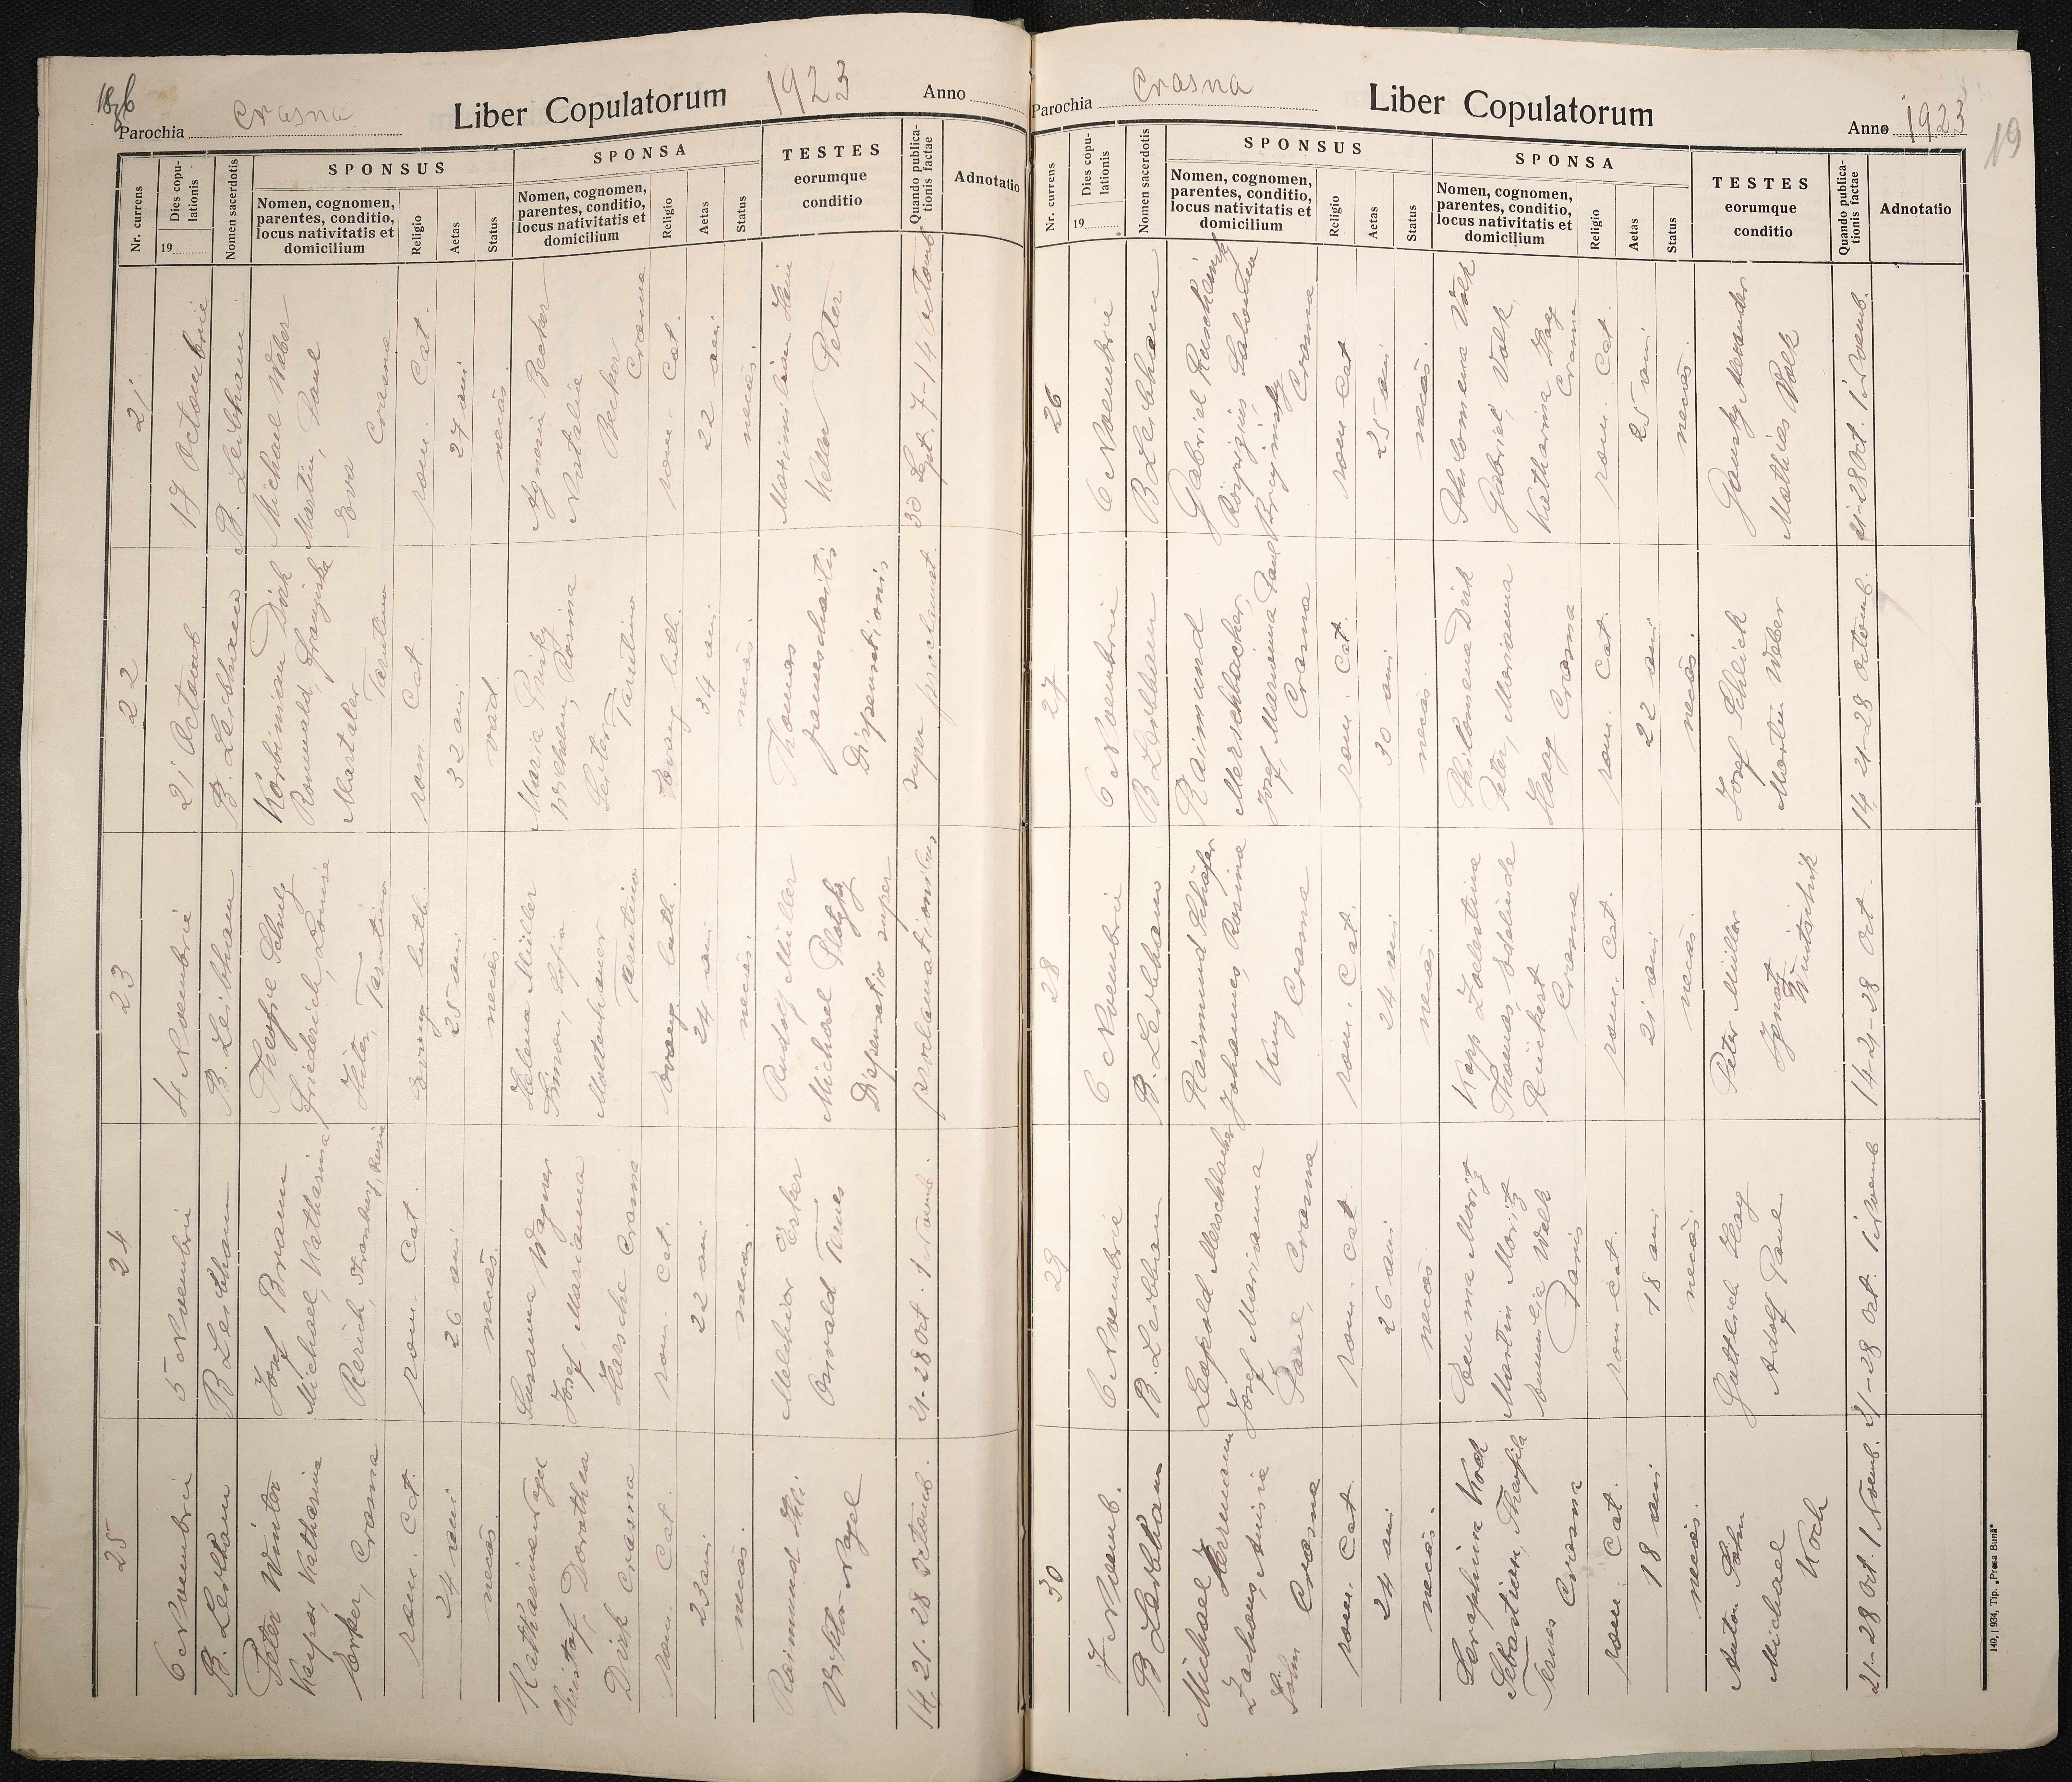 Parochia Crasna
Liber Copulatorum
1923
Anno
Nr. currens
Dies copu-
lationis
19
Nomen sacerdotis
SPONSUS
Nomen, cognomen,
parentes, conditio,
locus nativitatis et
domicilium
Religio
Aetas
Status
SPONSA
Nomen, cognomen,
parentes, conditio,
locus nativitatis et
domicilium
Religio
Aetas
Status
TESTES
eorumque
conditio
Quando publica-
tionis factae
Adnotatio
21
17 Octombrie
B. Leibham
Michael Weber
Martin, Paul
Eva
Crasna
rom. Cat.
27 ani
necăs.
Agnesia Becker
Natalie
Becker
Crasna
rom. Cat.
22 ani
necăs.
Maximilian
Keller Peter
30 Sept. 7-14 octomb
22
21 Octomb.
B. Leibham
Korbinian Dirk
Romuald, Franziska
Martaler
Tarutino
rom Cat.
32 ani
văd.
Maria
Wilhelm, Rosina
Tarutino
Evang. luth.
34 ani
necăs.
Thomas
Dispensationis
super proclamat.
23
4 Noembrie
B. Leibham
Schulz
Friederich, Louise
Tarutino
evang luth.
25 ani
necăs.
Helena Müller
Simon, Sofia
Mattenhauer
Tarutino
evang luth.
24 ani
necăs.
Rudolf Müller
Michael
Dispensatio super
proclamationibus
24
5 Noembrie
B Leibham
Josef Braun
Michael, Katharina
Rerich, Strassburg, Rusia
rom. Cat.
26 ani
necăs.
Susanna Wagner
Josef Marianna
Harsche Crasna
rom. Cat.
22 ani
necăs.
Melchior Erker
Oswald Ternes
21-28 Oct. 1 Noemb.
25
6 Noembrie
B. Leibham
Peter Winter
Kaspar, Katharina
Erker, Crasna
rom. Cat.
24 ani
necăs.
Katharina Nagel
Christof, Dorothea
Dirk Crasna
rom. Cat.
23 ani
necăs.
Raimund
Viktor Nagel
14. 21. 28 Octomb.
Parochia Crasna
Liber Copulatorum
Anno 1923
19
Nr. currens
Dies copu-
lationis
19
Nomen sacerdotis
SPONSUS
Nomen, cognomen,
parentes, conditio,
locus nativitatis et
domicilium
Religio
Aetas
Status
SPONSA
Nomen, cognomen,
parentes, conditio,
locus nativitatis et
domicilium
Religio
Aetas
Status
TESTES
eorumque
conditio
Quando publica-
tionis factae
Adnotatio
26
6 Noembrie
B Leibham
Gabriel
Crasna
rom Cat
25 ani
necăs.
Philomena Volk
Gabriel, Volk
Katharina Haag
Crasna
rom. Cat.
25 ani
necăs.
Gansky Alexander
Mathias Volk
21-28 Oct. 1 Noemb.
27
6 Noembrie
B Leibham
Raimund
Merschbacher,
Josef, Marianna Paul
Crasna
rom. Cat.
30 ani
necăs.
Philomena Dirk
Peter, Marianna
Haag Crasna
rom. Cat.
22 ani
necăs.
Josef Schlick
Martin Weber
14 21-28 Octomb.
28
6 Noembrie
B. Leibham
Raimund Schäfer
Johannes, Rosina
Kung Crasna
rom. Cat.
24 ani
necăs.
Kapp Zoelestina
Thomas, Edelinde
Rückert
Crasna
rom. Cat.
21 ani
necăs.
Peter Müller
Ignatz
14-21-28 Oct.
29
6 Noembrie
B. Leibham
Leopold Merschbacher
Josef Marianna
Paul, Crasna
rom. Cat.
26 ani
necăs.
Emma Moritz
Martin Moritz
Emmilia Volk
Paris
rom Cat.
18 ani
necăs.
Gottlieb Haag
Adolf Paul
21-28 Oct. 1 Noemb
30
7 Noemb.
B Leibham
Michael Herrmann
Crasna
rom. Cat.
24 ani
necăs.
Seraphina Koch
Sebastian, Theofila
Ternes Crasna
rom. Cat.
18 ani
necăs.
Anton Söhn
Michael
Koch
21-28 Oct. 1 Noemb.
140, 1934, Tip. „Presa Bună"